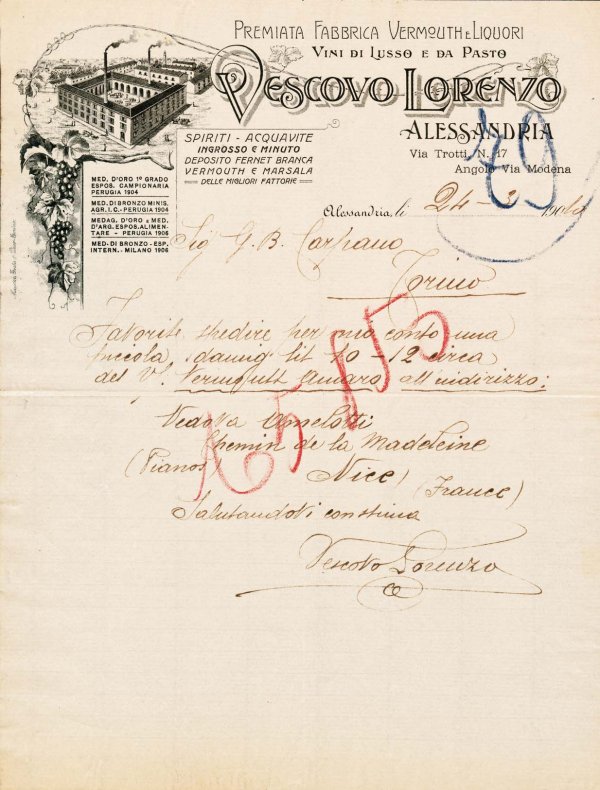 PREMIATA FABBRICA VERMOUTH E LIQUORI
VINI DI LUSSO E DA PASTO
VESCOVO LORENZO
ALESSANDRIA
Via Trotti, N. 17
Angolo Via Modena
SPIRITI - ACQUAVITE
INGROSSO E MINUTO
DEPOSITO FERNET BRANCA
VERMOUTH E MARSALA
DELLE MIGLIORI FATTORIE
MED. D'ORO 1º GRADO
ESPOS. CAMPIONARIA
PERUGIA 1904
MED. DI BRONZO MINIS.
AGR. I. C. - PERUGIA 1904
MEDAG. D'ORO E MED.
D'ARG. ESPOS. ALIMEN-
TARE - PERUGIA 1906
MED. DI BRONZO - ESP.
INTERN. - MILANO 1906
Alessandria, li 24-3 190
Sig G. B. Carpano
Torino
Favorite spedire per mio conto una
piccola damig lit 10-12 circa
del Vº Vermouth Amaro all'indirizzo:
Vedova
Chemin de la Madeleine
(Pianos) Nice
(France)
Salutandovi con stima
Vescovo Lorenzo